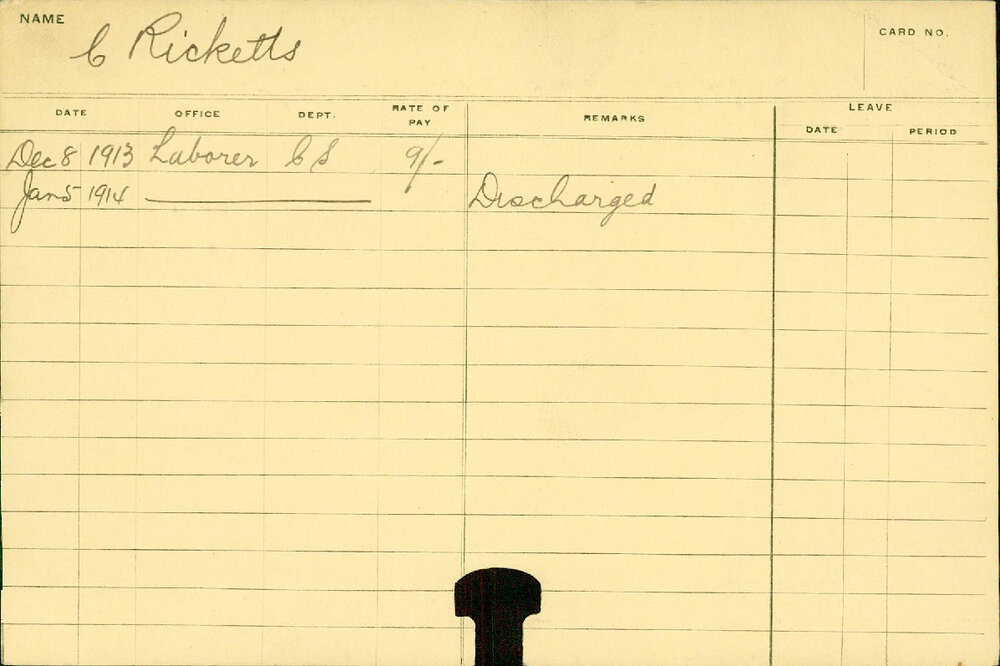 NAME C Ricketts CARD NO.
DATE OFFICE DEPT. RATE OF PAY REMARKS LEAVE
DATE PERIOD
Dec 8 1913 Laborer C S 9/-
Jan 5 1914 Discharged